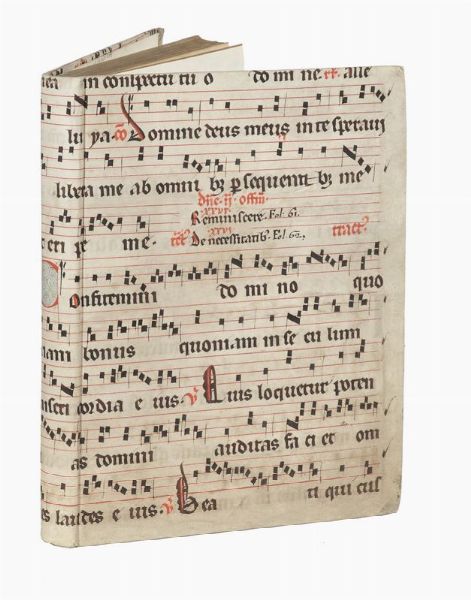 in conspectu tu o do mi ne. ct. alle
lu ya. co Domine deus meus in te speravi
libera me ab omni bꝫ ꝑsequenti bꝫ me
et eri pe me.
Reminiscere. Fol. 61.
De necessitatib. Fol. 62.
tract⁹
Onfitemini do mi no quo
niam bonus quoniam in se cu lum
miseri cordia e ius. ℣ Quis loquetur poten
as domini auditas fa ci et om
es laudes e ius. ℣ Bea ti qui cus